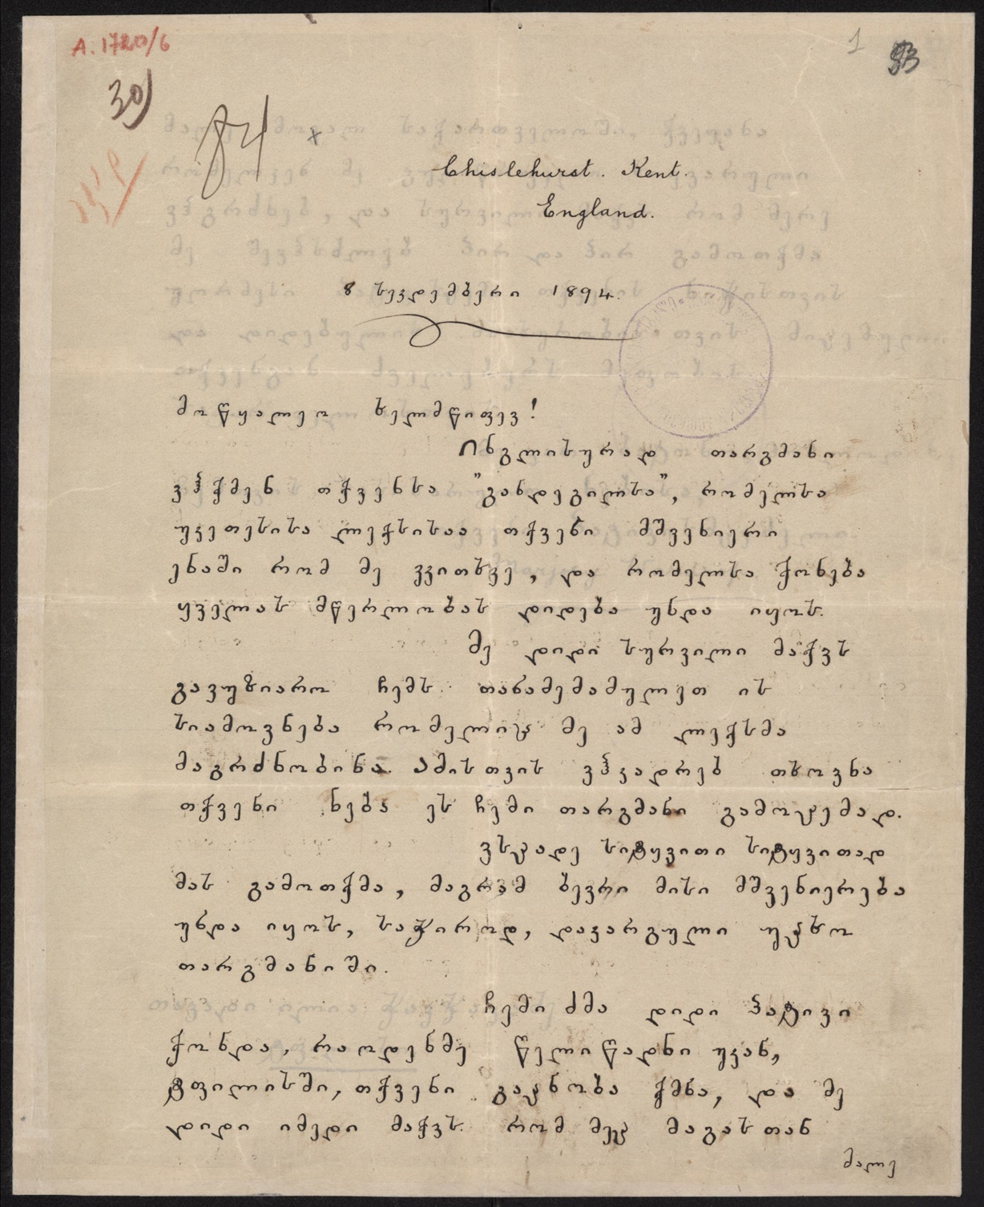 A. 1720/6
1
33
30)
84 x
Chislehurst. Kent.
England.
8 სეკდემბერი 1894.
მოწყალეო ხელმწიფევ!
Ინგლისურად თარგმანი
ვჰქმენ თქვენსა "განდეგილსა", რომელსა
უკეთესისა ლექსისაა თქვენი მშვენიერი
ენაში რომ მე ვკითხვე, და რომელსა ქონება
ყველას მწერლობას დიდება უნდა იყოს.
მე დიდი სურვილი მაქვს
გავუზიარო ჩემს თანამემამულეთ ის
სიამოვნება რომელიც მე ამ ლექსმა
მაგრძნობინა. ამისთვის ვჰკადრებ თხოვნა
თქვენი ნება ეს ჩემი თარგმანი გამოცემად.
ვსცადე სიტყვითი სიტყვითად
მას გამოთქმა, მაგრამ ბევრი მისი მშვენიერება
უნდა იყოს, საჭიროდ, დაკარგული უცხო
თარგმანიში.
ჩემი ძმა დიდი პატივი
ქონდა, რაოდენმე წელიწადნი უკან,
ტფილისში, თქვენი გაცნობა ქმნა, და მე
დიდი იმედი მაქვს რომ მეც მაგასთან
მალე